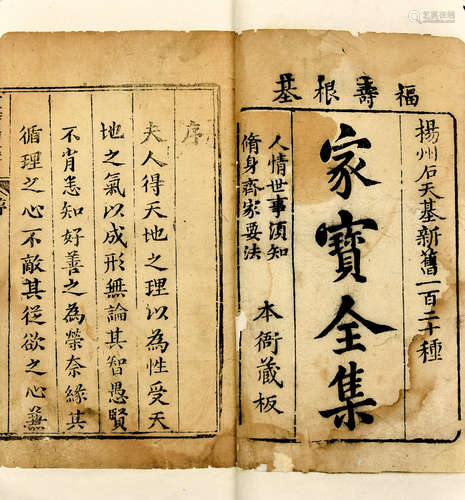 福壽根基
揚州石天基新舊一百二十種
家寶全集
人情世事須知
脩身齊家要法
本衙藏板
序
夫人得天地之理以為性受天
地之氣以成形無論其智愚賢
不肖悉知好善之為榮奈緣其
循理之心不敵其從欲之心蕪